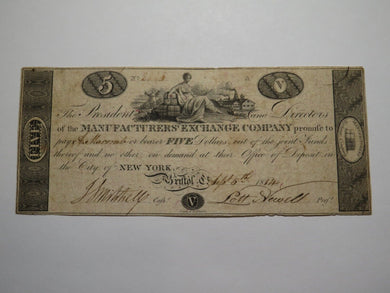 5
V
The President and Directors
of the MANUFACTURERS' EXCHANGE COMPANY promise to
pay or bearer FIVE Dollars, out of the joint Funds
thereof and no other, on demand at their Office of Deposit in
the City of NEW YORK.
Bristol, Ct. 5th 1814
Cash.r
V
Pres.t
FIVE